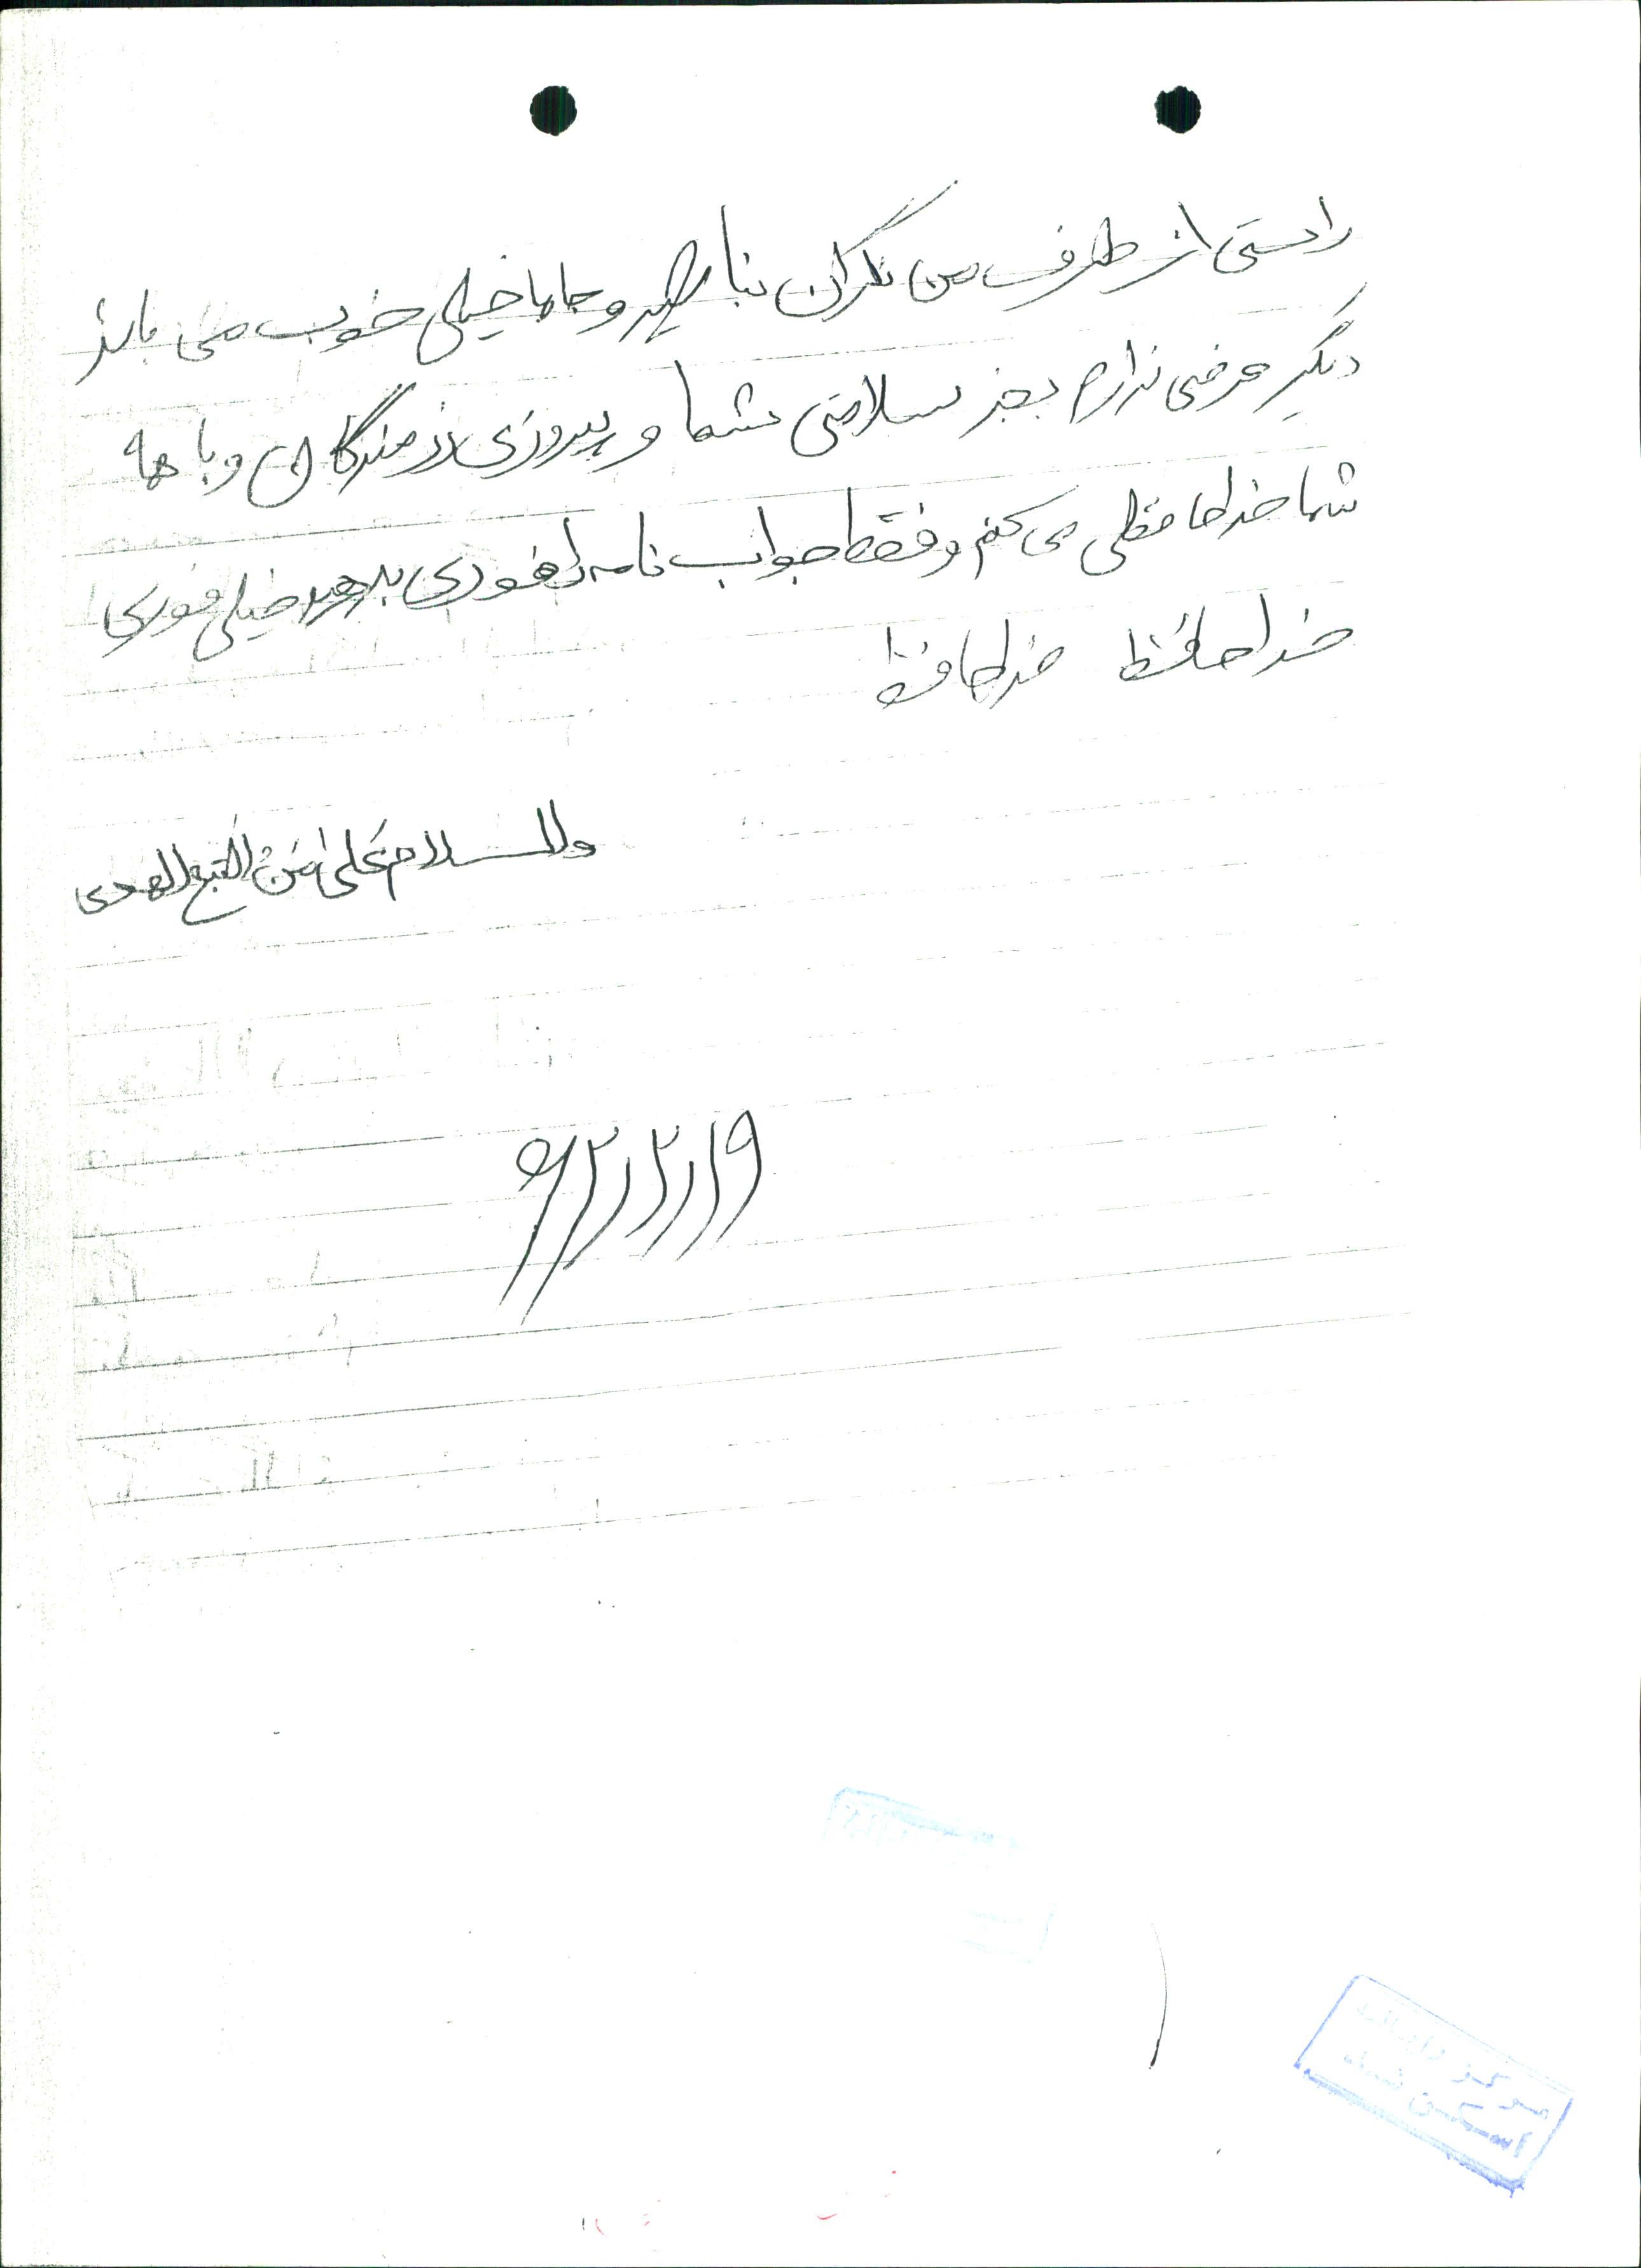 راستی از طرف من نگران نباشید و جاما خیلی خوب می باشد
دیگر عرضی ندارم بجز سلامتی شما و پیروزی رزمندگان و با همه
شما خداحافظی می کنم و فقط جواب نامه را فوری بدهید خیلی فوری
خداحافظ خداحافظ
والسلام علی من التبع الهدی
۶۲،۲،۱۹
اسکن شد